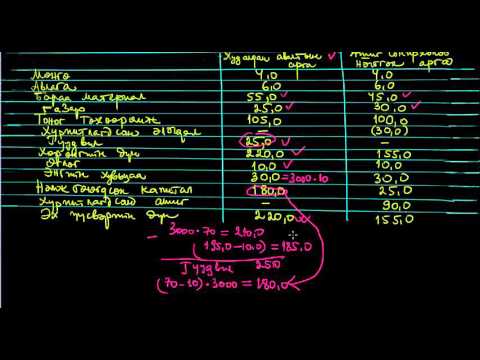 Худалдан авалтын арга ✓ Ашиг сонирхлыг нэгтгэх арга ✓
Мөнгө 4,0 4,0
Авлага 6,0 6,0
Бараа материал 55,0 ✓ 45,0 ✓
Газар 25,0 ✓ 30,0 ✓
Тоног төхөөрөмж 105,0 100,0
Хуримтлагдсан элэгдэл – (30,0)
Гүүдвил 25,0 ✓ –
Хөрөнгийн дүн 220,0 ✓ 155,0
Өглөг 10,0 ✓ 10,0
Энгийн хувьцаа 30,0 = 3000·10 30,0
Нэмж төлөгдсөн капитал 180,0 25,0
Хуримтлагдсан ашиг – 90,0
Эх үүсвэрийн дүн 220,0 ✓ 155,0
– 3000·70 = 210,0
(195,0–10,0) = 185,0
Гүүдвил 25,0
(70–10)·3000 = 180,0